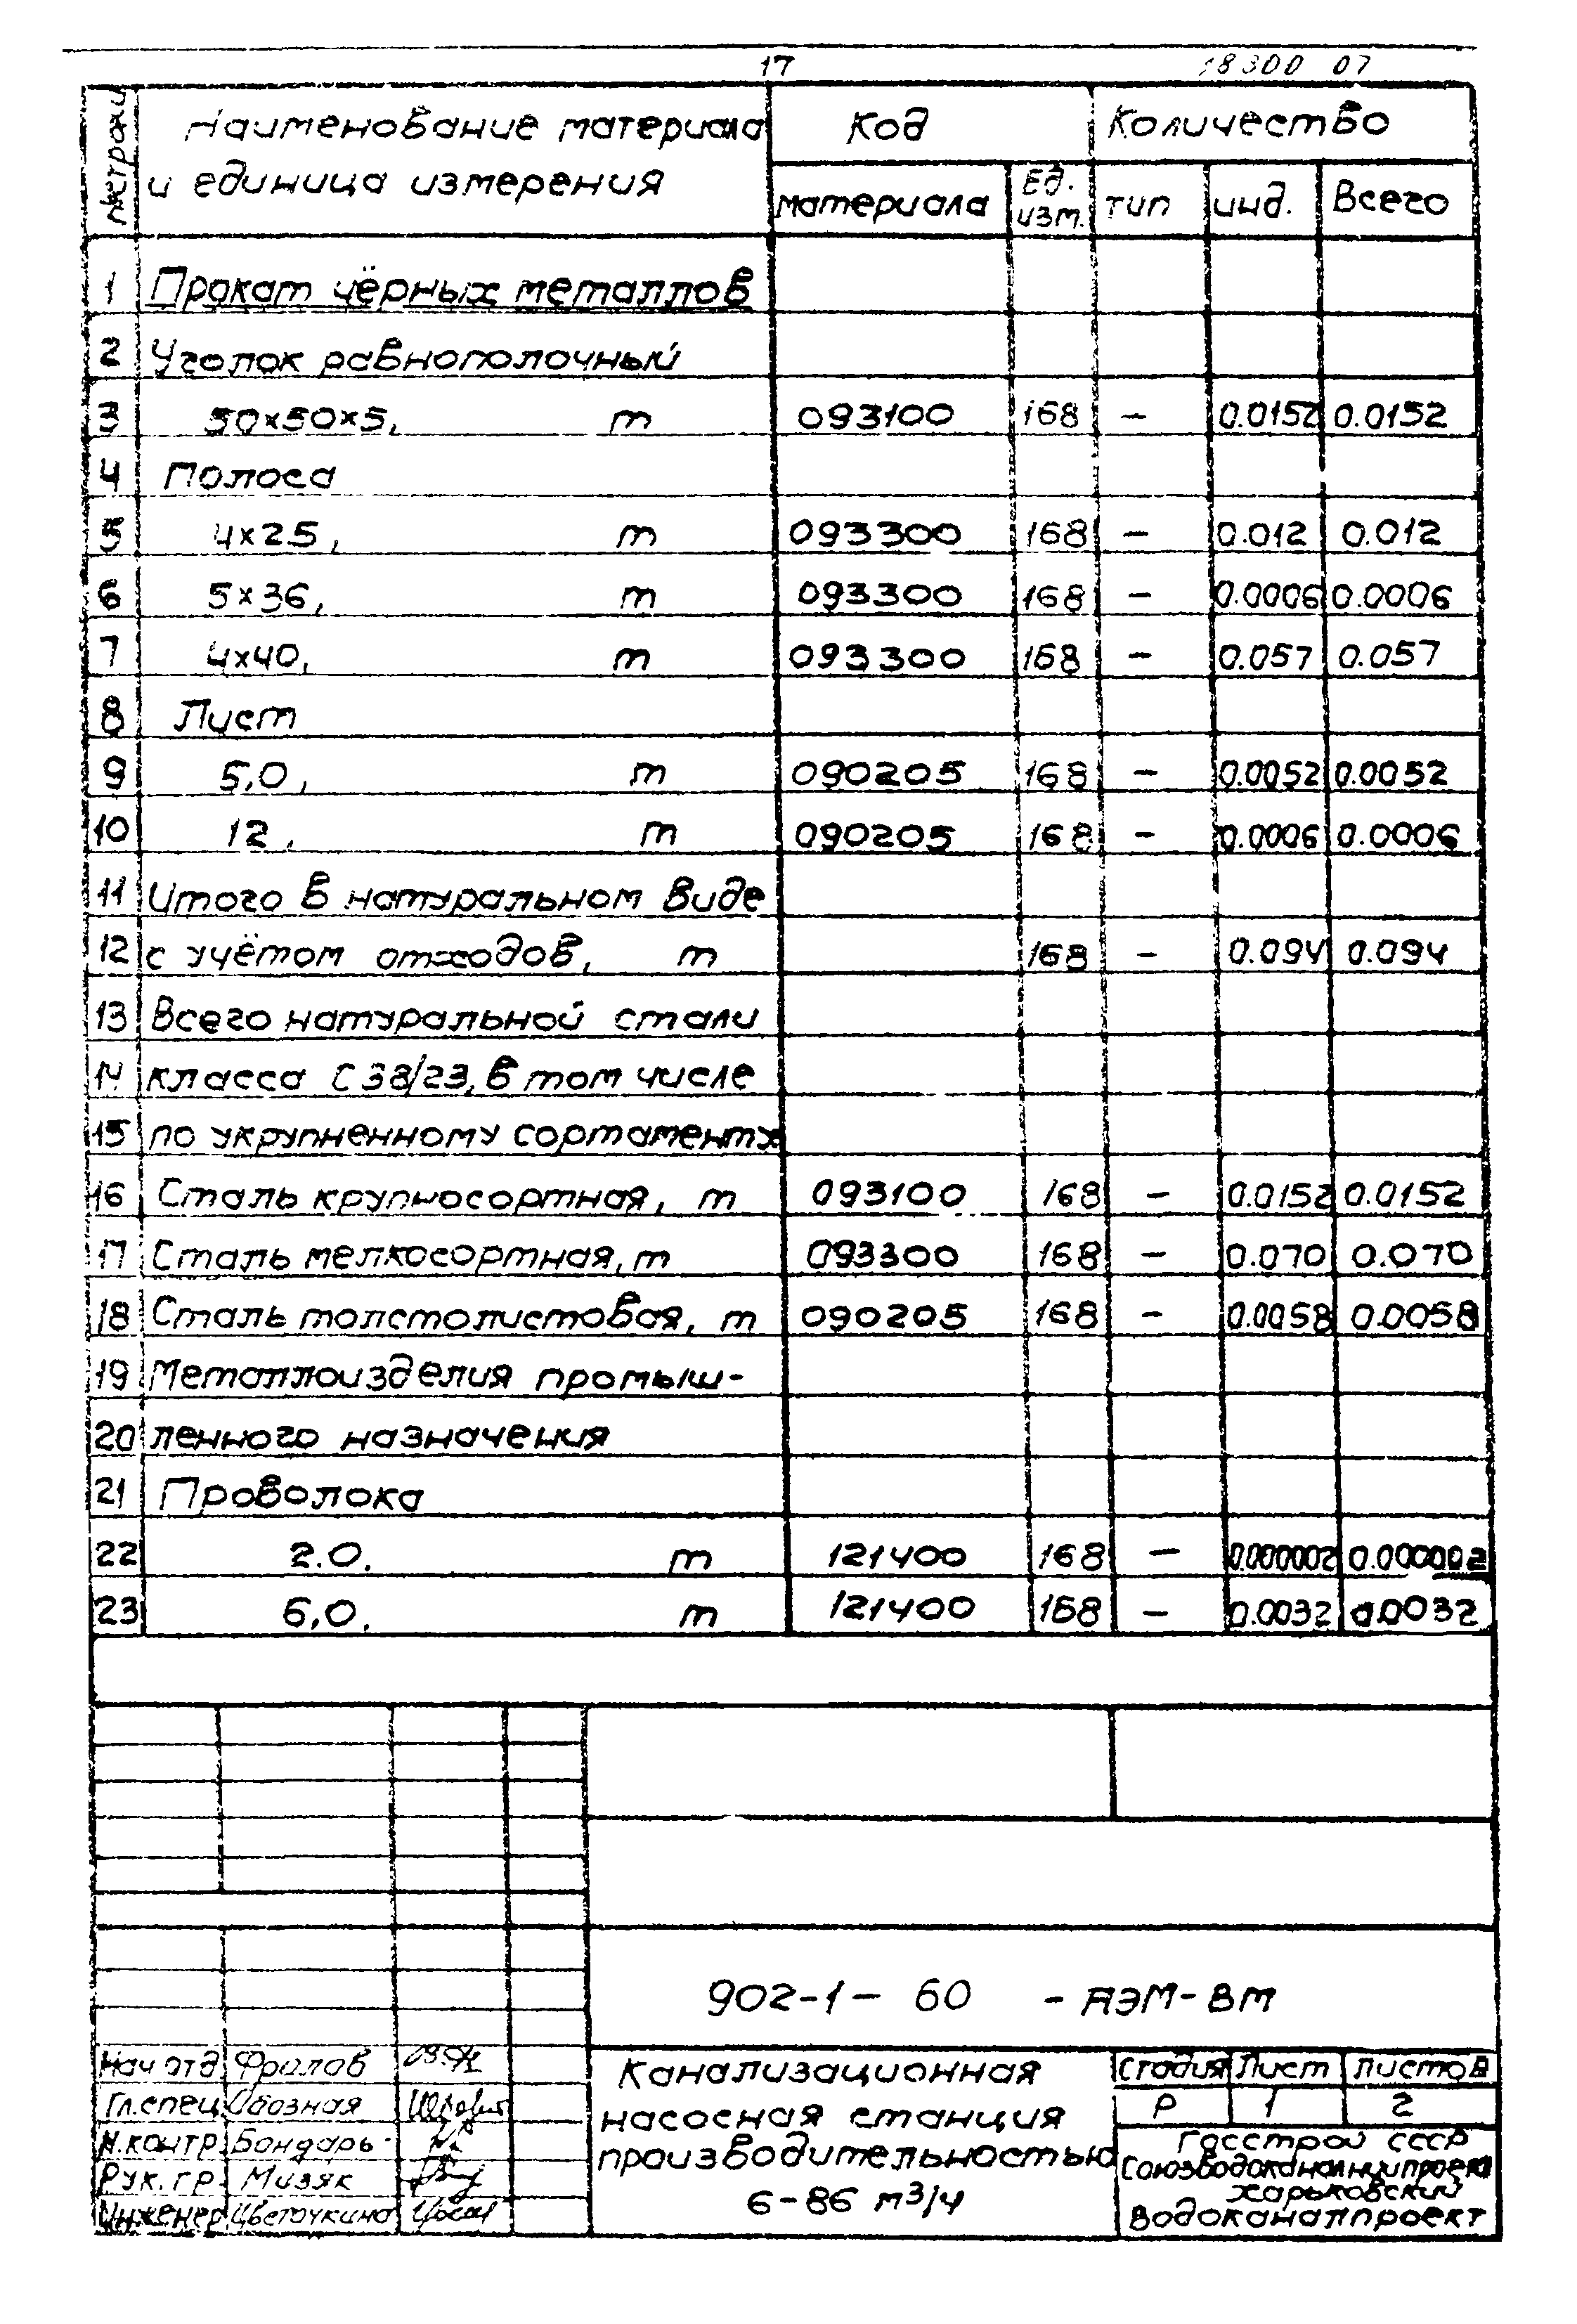 17
18300 07
№ строки
Наименование материала
и единица измерения
Код
Количество
материала
Ед. изм.
тип
инд.
Всего
1 Прокат чёрных металлов
2 Уголок равнополочный
3 50×50×5, т 093100 168 – 0.0152 0.0152
4 Полоса
5 4×25, т 093300 168 – 0.012 0.012
6 5×36, т 093300 168 – 0.0006 0.0006
7 4×40, т 093300 168 – 0.057 0.057
8 Лист
9 5,0, т 090205 168 – 0.0052 0.0052
10 12, т 090205 168 – 0.0006 0.0006
11 Итого в натуральном виде
12 с учётом отходов, т 168 – 0.094 0.094
13 Всего натуральной стали
14 класса С38/23, в том числе
15 по укрупненному сортаменту
16 Сталь крупносортная, т 093100 168 – 0.0152 0.0152
17 Сталь мелкосортная, т 093300 168 – 0.070 0.070
18 Сталь толстолистовая, т 090205 168 – 0.0058 0.0058
19 Металлоизделия промыш-
20 ленного назначения
21 Проволока
22 2.0. т 121400 168 – 0.000002 0.000002
23 6,0. т 121400 168 – 0.0032 0.0032
902-1- 60 - АЭМ-ВМ
Нач отд. Фролов
Гл.спец. Обозная
Н.контр. Бондарь
Рук. гр. Мизяк
Инженер Цветочкина
Канализационная
насосная станция
производительностью
6-86 м³/ч
Стадия Лист Листов
Р 1 2
Госстрой СССР
Союзводоканалниипроект
Харьковский
Водоканалпроект